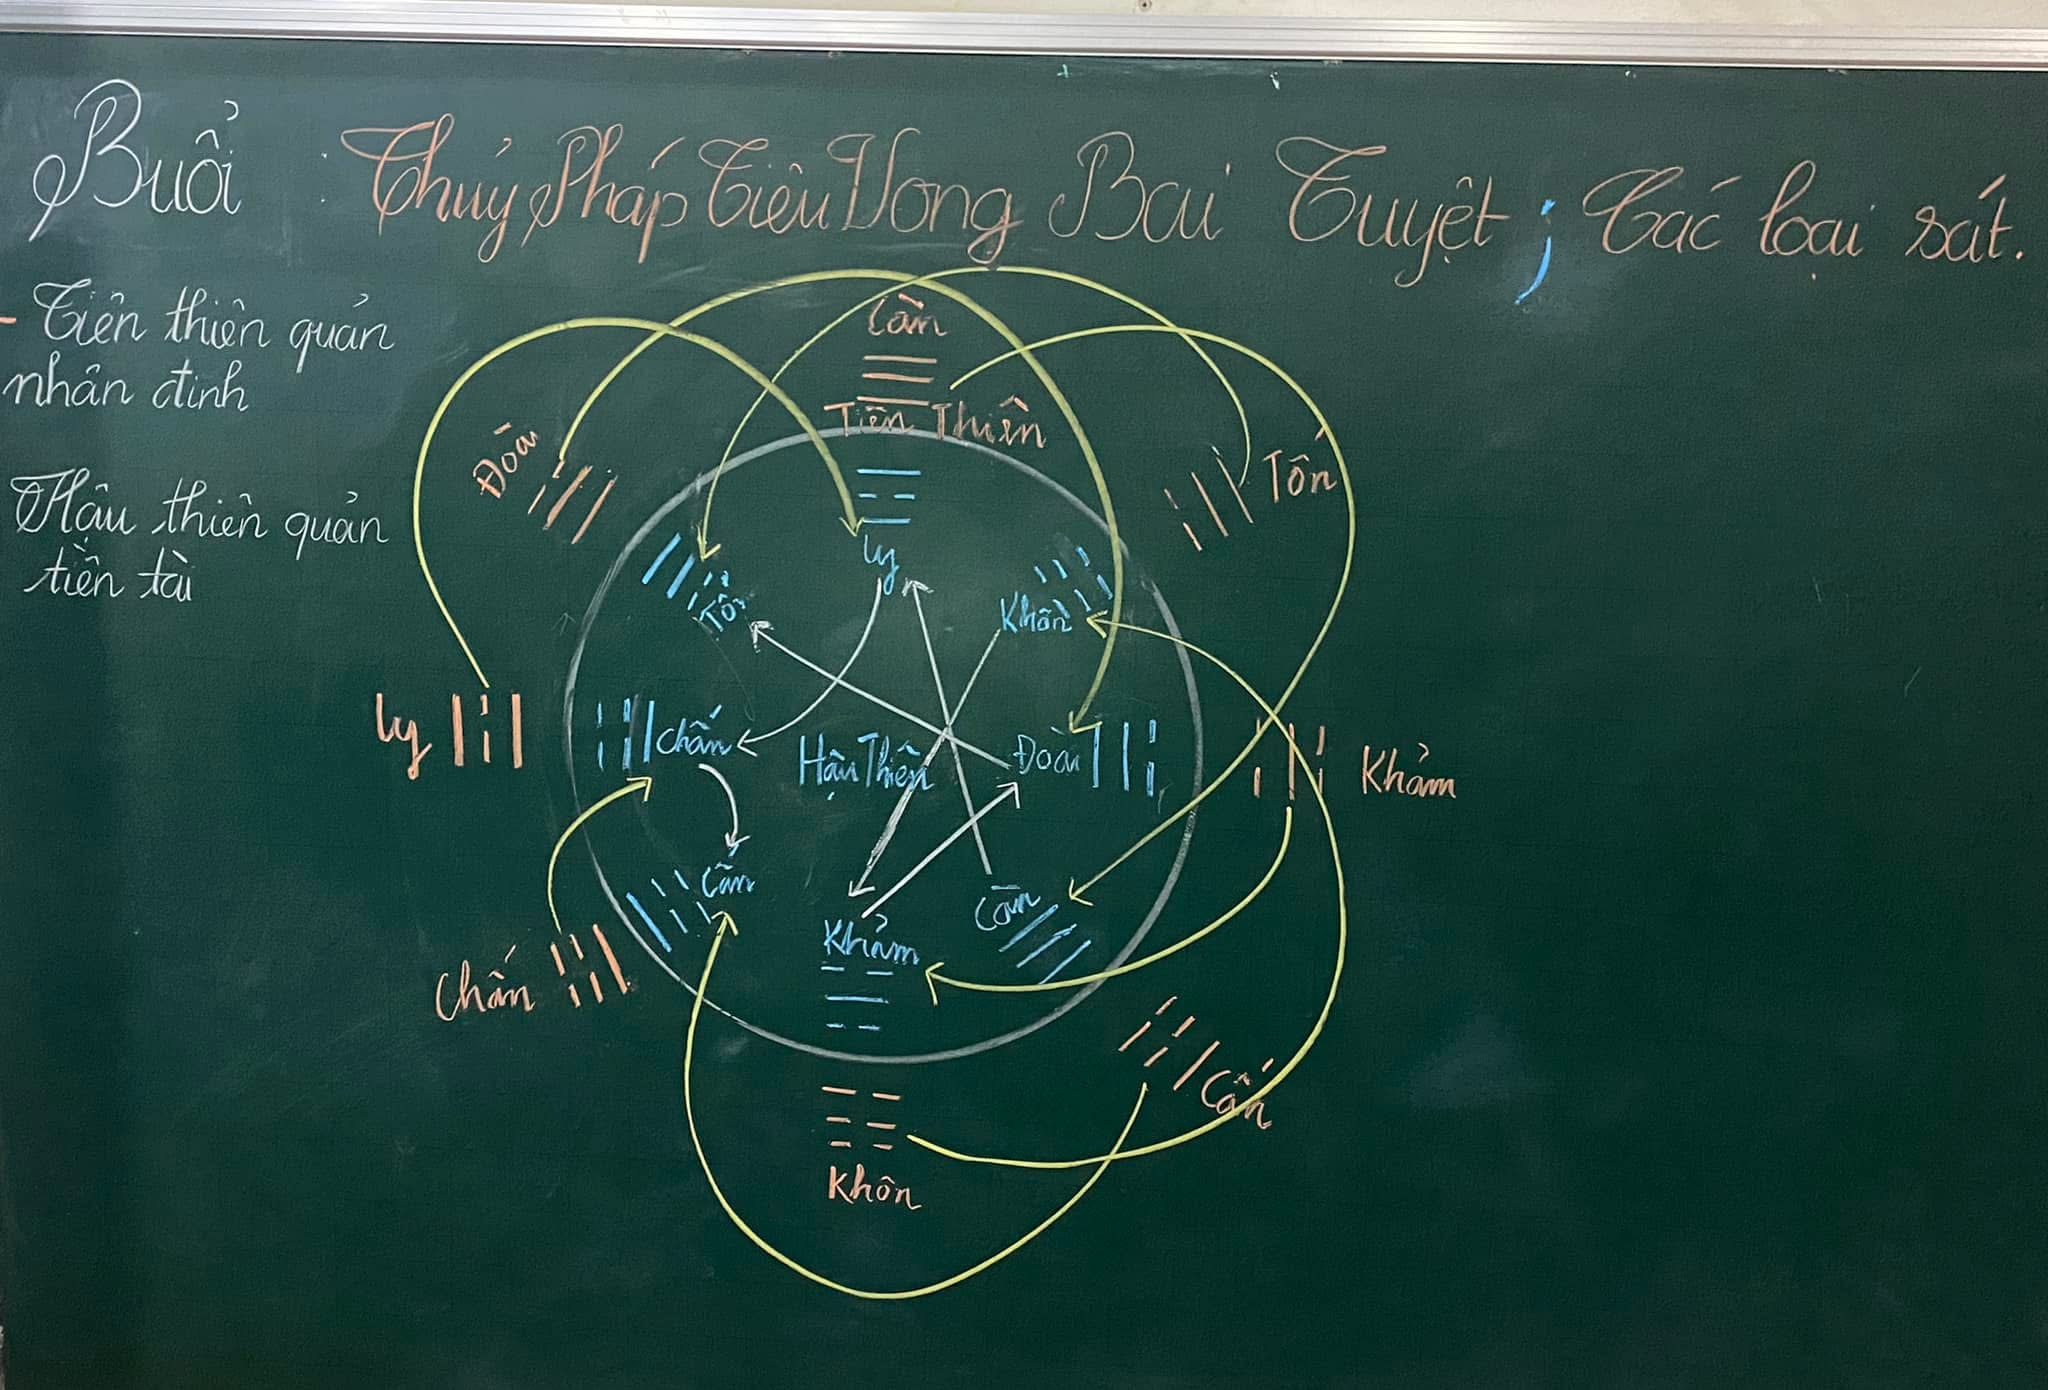 Buổi : Thủy Pháp Tiêu Vong Bại Tuyệt ; Các loại sát.
- Tiên thiên quản
nhân đinh
Hậu thiên quản
tiền tài
Càn
Tiên Thiên
Đoài
Tốn
Ly
Khảm
Chấn
Cấn
Khôn
Ly
Tốn
Khôn
Chấn
Hậu Thiên
Đoài
Cấn
Càn
Khảm